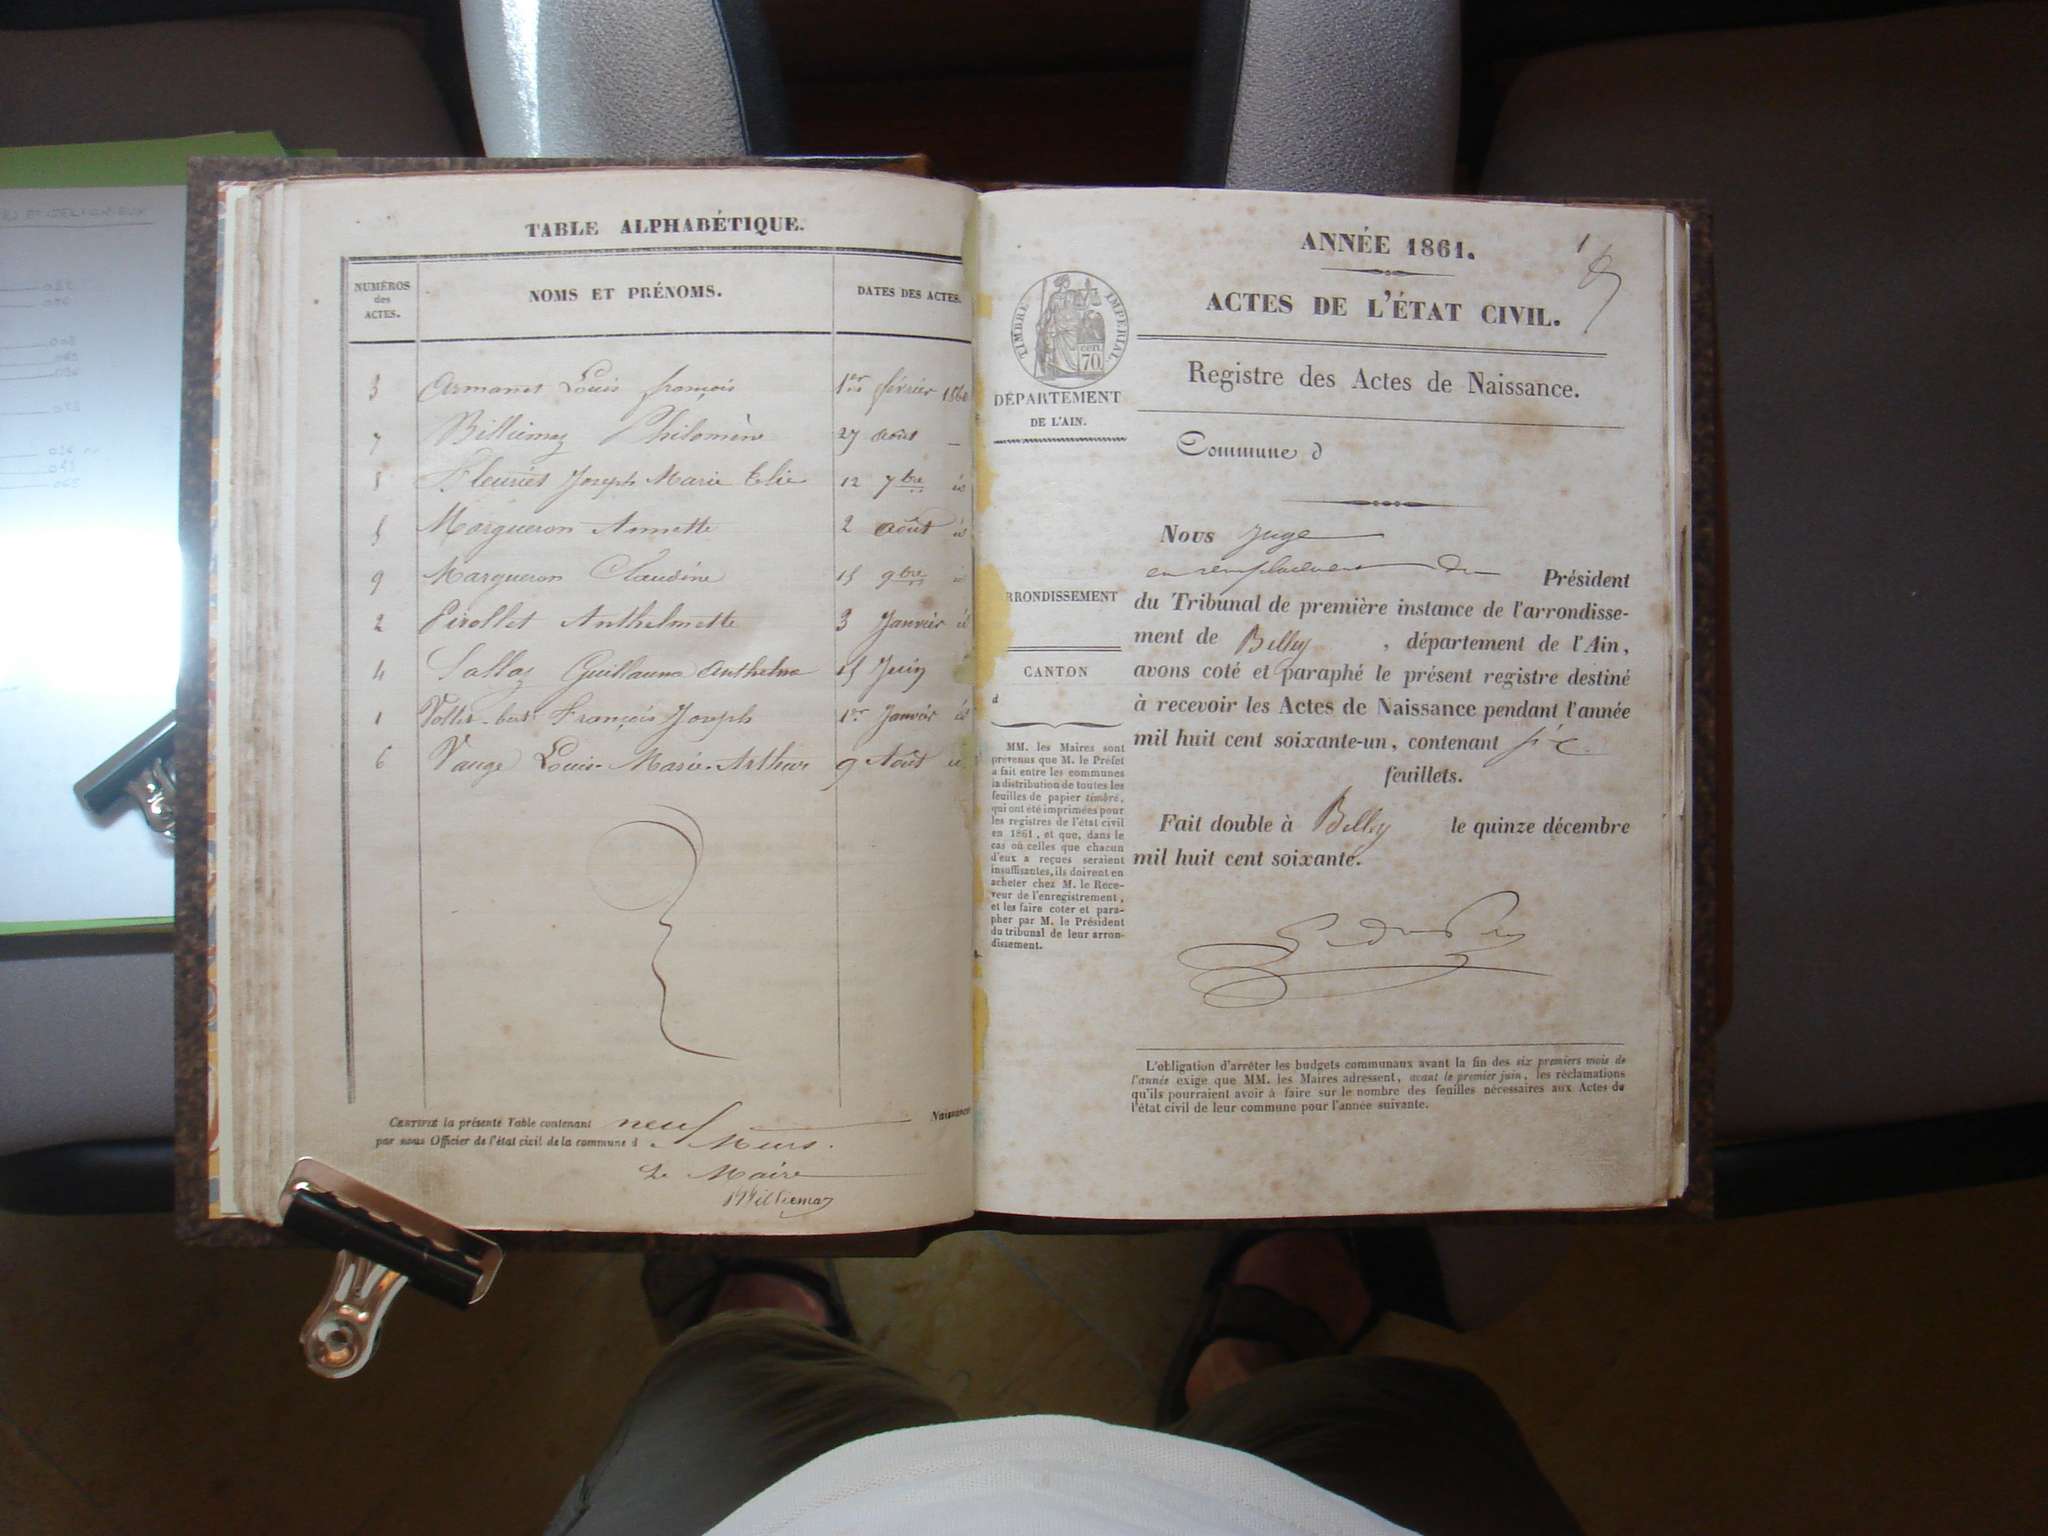 TABLE ALPHABÉTIQUE.
NUMÉROS
des
ACTES.
NOMS ET PRÉNOMS.
DATES DES ACTES.
3 Armanet Louis françois 1er février 1860
7 Billiemaz Philomène 27 août —
8 Fleuriet Joseph Marie Elie 12 7bre id
5 Margueron Annette 2 août id
9 Margueron Claudine 15 9bre id
2 Pirollet Anthelmette 3 Janvier id
4 Sallaz Guillaume Anthelme 15 Juin
1 François Joseph 1er Janvier id
6 Vauge Louis-Marie-Arthur 9 Août id
CERTIFIÉ la présente Table contenant neuf Naissances
par nous Officier de l'état civil de la commune d
Le Maire
Billiemaz
ANNÉE 1861.
1
ACTES DE L'ÉTAT CIVIL.
TIMBRE IMPÉRIAL
cen.
70
DÉPARTEMENT
DE L'AIN.
Registre des Actes de Naissance.
Commune d
Nous Juge
en remplacement du Président
du Tribunal de première instance de l'arrondisse-
ment de Belley , département de l'Ain,
avons coté et paraphé le présent registre destiné
à recevoir les Actes de Naissance pendant l'année
mil huit cent soixante-un, contenant six
feuillets.
Fait double à Belley le quinze décembre
mil huit cent soixante.
RRONDISSEMENT
CANTON
d
MM. les Maires sont
prévenus que M. le Préfet
a fait entre les communes
la distribution de toutes les
feuilles de papier timbré,
qui ont été imprimées pour
les registres de l'état civil
en 1861, et que, dans le
cas où celles que chacun
d'eux a reçues seraient
insuffisantes, ils doivent en
acheter chez M. le Rece-
veur de l'enregistrement,
et les faire coter et para-
pher par M. le Président
du tribunal de leur arron-
dissement.
L'obligation d'arrêter les budgets communaux avant la fin des six premiers mois de
l'année exige que MM. les Maires adressent, avant le premier juin, les réclamations
qu'ils pourraient avoir à faire sur le nombre des feuilles nécessaires aux Actes de
l'état civil de leur commune pour l'année suivante.